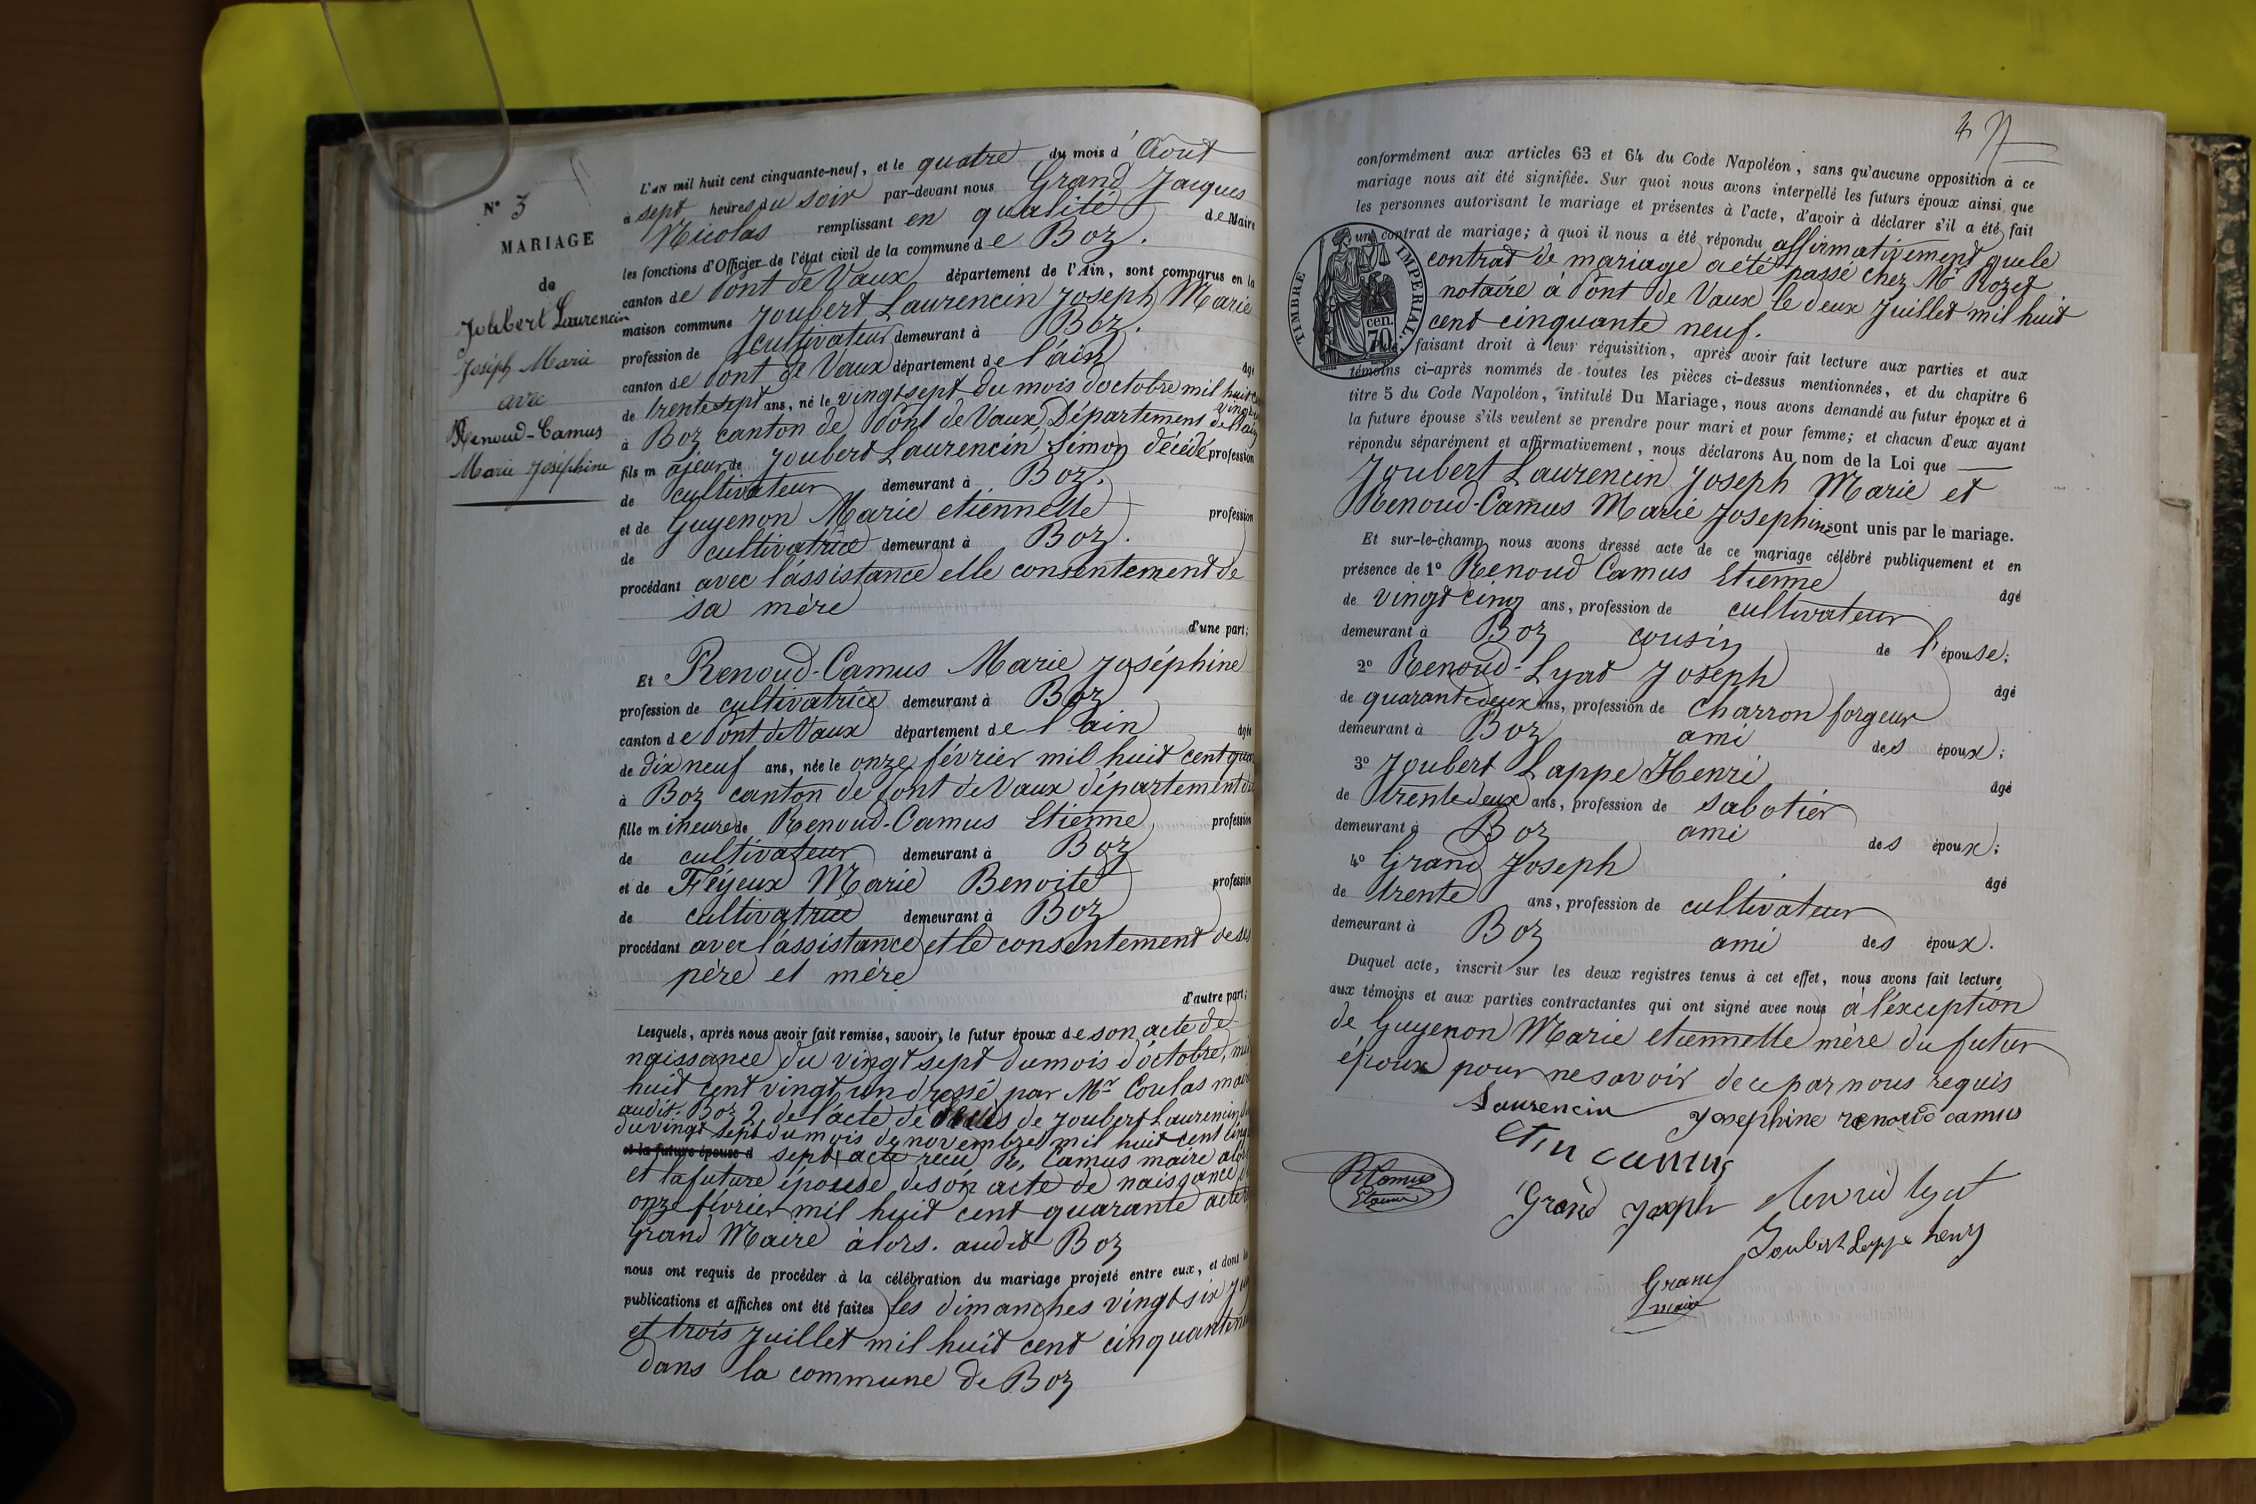 N° 3
MARIAGE
de
Joubert Laurencin
Joséph Marie
avec
Renoud-Camus
Marie Joséphine
L'AN mil huit cent cinquante-neuf, et le quatre du mois d'Aout
à sept heures du soir par-devant nous Grand Jacques
Nicolas remplissant en qualité de Maire
les fonctions d'Officier de l'état civil de la commune de Boz.
canton de Pont de Vaux département de l'Ain, sont comparus en la
maison commune Joubert Laurencin Joseph Marie
profession de cultivateur demeurant à Boz.
canton de Pont de Vaux département de l'ain âgé
de trente sept ans, né le vingt sept du mois d'octobre mil huit cent
vingt un
à Boz canton de Pont de Vaux Département de l'ain
fils majeur de Joubert Laurencin Simon décédé profession
de cultivateur demeurant à Boz.
et de Guyenon Marie etiennette profession
de cultivatrice demeurant à Boz.
procédant avec l'assistance elle consentement de
sa mère
d'une part;
Et Renoud-Camus Marie Joséphine
profession de cultivatrice demeurant à Boz
canton de Pont de Vaux département de l'ain âgée
de dix neuf ans, née le onze février mil huit cent qua
à Boz canton de Pont de Vaux département de
fille mineure de Renoud-Camus Etienne profession
de cultivateur demeurant à Boz
et de Féyeux Marie Benoite profession
de cultivatrice demeurant à Boz
procédant avec l'assistance et le consentement de ses
père et mère
d'autre part;
Lesquels, après nous avoir fait remise, savoir, le futur époux de son acte de
naissance du vingt sept du mois d'octobre, mil
huit cent vingt un dressé par Mr Coulas maire
audit. Boz 2, de l'acte de décès de Joubert Laurencin
du vingt sept du mois de novembre mil huit cent cinq
et la future épouse d sept acte recu R. Camus maire alors
et la future épouse de son acte de naissance
onze février mil huit cent quarante acte
Grand Maire alors. audit Boz
nous ont requis de procéder à la célébration du mariage projeté entre eux, et dont les
publications et affiches ont été faites les dimanches vingt six
et trois Juillet mil huit cent cinquante neuf
dans la commune de Boz
conformément aux articles 63 et 64 du Code Napoléon, sans qu'aucune opposition à ce
mariage nous ait été signifiée. Sur quoi nous avons interpellé les futurs époux ainsi que
les personnes autorisant le mariage et présentes à l'acte, d'avoir à déclarer s'il a été fait
un contrat de mariage; à quoi il nous a été répondu affirmativement que le
contrat de mariage a été passé chez Mr Rozet
notaire à Pont de Vaux le deux Juillet mil huit
cent cinquante neuf.
TIMBRE IMPERIAL.
70 cen.
faisant droit à leur réquisition, après avoir fait lecture aux parties et aux
témoins ci-après nommés de toutes les pièces ci-dessus mentionnées, et du chapitre 6
titre 5 du Code Napoléon, intitulé Du Mariage, nous avons demandé au futur époux et à
la future épouse s'ils veulent se prendre pour mari et pour femme; et chacun d'eux ayant
répondu séparément et affirmativement, nous déclarons Au nom de la Loi que
Joubert Laurencin Joseph Marie et
Renoud-Camus Marie Josephine sont unis par le mariage.
Et sur-le-champ nous avons dressé acte de ce mariage célébré publiquement et en
présence de 1° Renoud Camus Etienne âgé
de vingt cinq ans, profession de cultivateur
demeurant à Boz cousin de l'épouse;
2° Renoud-Lyat Joseph âgé
de quarante deux ans, profession de Charron forgeur
demeurant à Boz ami des époux;
3° Joubert Lappe Henri âgé
de trente deux ans, profession de sabotier
demeurant à Boz ami des époux;
4° Grand Joseph âgé
de trente ans, profession de cultivateur
demeurant à Boz ami des époux.
Duquel acte, inscrit sur les deux registres tenus à cet effet, nous avons fait lecture
aux témoins et aux parties contractantes qui ont signé avec nous à l'éxception
de Guyenon Marie etiennette mère du futur
époux pour ne savoir de ce par nous requis
Laurencin Josephine renoud camus
R Camus
Etienne
Grand Joseph
Joubert Lappe henry
Grand
maire